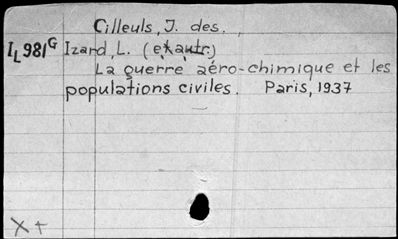 Cilleuls, J. des.
IL981G Izard, L. (et autr.)
La guerre aéro-chimique et les
populations civiles. Paris, 1937
X+